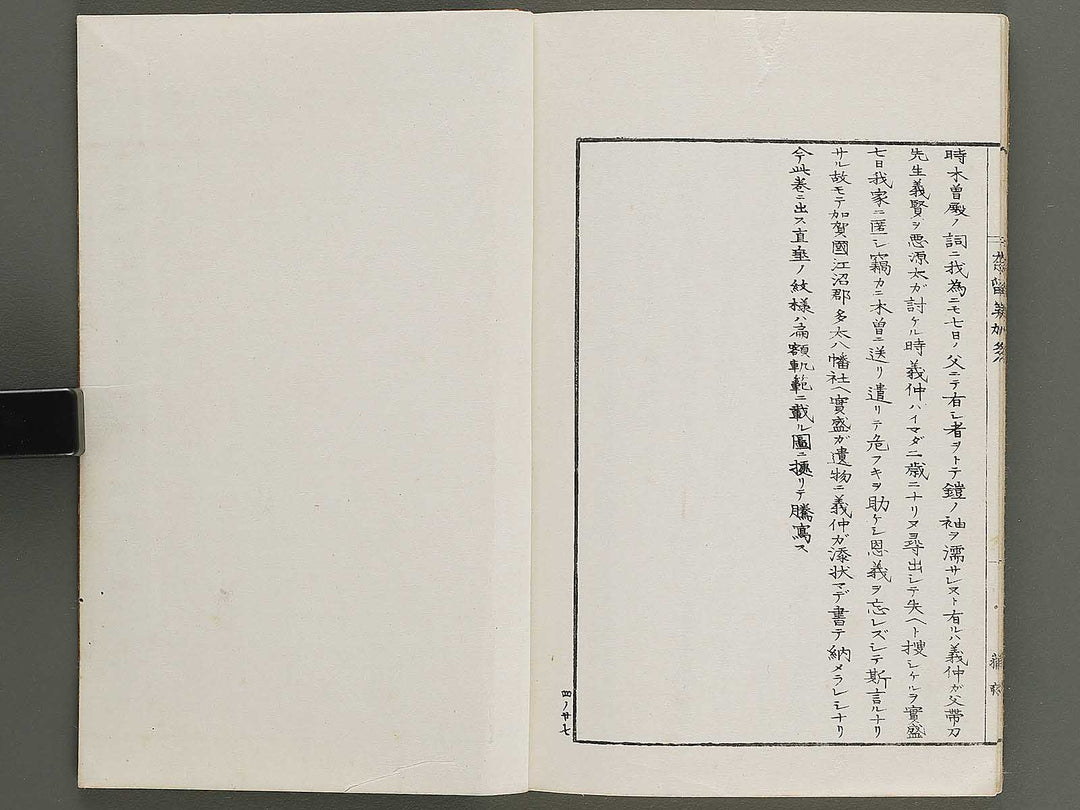 時木曽殿ノ詞ニ我為ニモ七日ノ父ニテ有シ者ヲトテ鎧ノ袖ヲ濡サレヌト有ルハ義仲ガ父帯刀
先生義賢ヲ悪源太ガ討ケル時義仲ハイマダ二歳ニナリヌ尋出シテ失ヘト捜シケルヲ實盛
七日我家ニ匿シ竊カニ木曽ニ送リ遣リテ危フキヲ助ケシ恩義ヲ忘レズシテ斯言ルナリ
サル故モテ加賀國江沼郡多太八幡社ヘ實盛ガ遺物ニ義仲ガ添状マデ書テ納メラレシナリ
今此巻ニ出ス直垂ノ紋様ハ扁額軌範ニ載ル圖ニ拠リテ騰寫ス
四ノ廿七